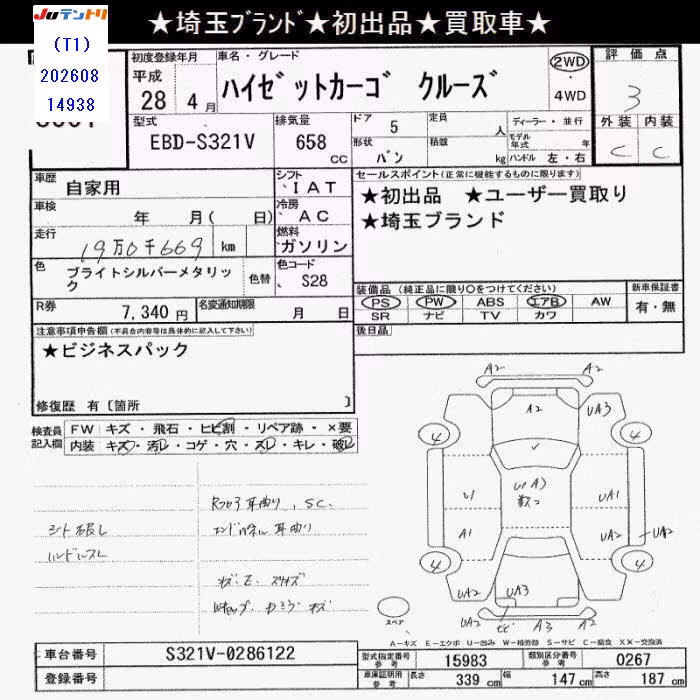 JUテントリ
★埼玉ブランド★初出品★買取車★
(T1)
202608
14938
初度登録年月
平成
28年 4月
車名・グレード
ハイゼットカーゴ クルーズ
2WD
・
4WD
評価点
3
外装 内装
C C
型式
EBD-S321V
排気量
658
CC
ドア
5
定員
人
形状
バン
積載
kg
ディーラー・並行
モデル年式 年
ハンドル 左・右
車歴
自家用
シフト
IAT
車検
年 月( 日)
冷房
AC
走行
19万0千669 km
燃料
ガソリン
色
ブライトシルバーメタリック
色替
色コード
S28
R券
7,340 円
名変通知期限
月 日
セールスポイント(正常に機能するものに限ります)
★初出品 ★ユーザー買取り
★埼玉ブランド
装備品 (純正品に限り○をつけてください)
PS PW ABS エアB AW
SR ナビ TV カワ
新車保証書
有・無
後日品
注意事項申告欄(不具合内容等は具体的に記入して下さい)
★ビジネスパック
修復歴 有〔箇所 〕
検査員記入欄
FW キズ・飛石・ヒビ割・リペア跡・×要
内装 キズ・汚レ・コゲ・穴・スレ・キレ・破レ
シート破レ
ハンドルスレ
耳曲り、S.C.
耳曲り
A2 A2
A2
UA3
4 4
U1
UA3
数コ
UA1
A1
UA2
UA2
4 4
UA2
UA3
UA2
UA2 A3 A2
スペア
A-キズ E-エクボ U-凹み W-補修跡 S-サビ C-腐食 XX-交換済
車台番号
S321V-0286122
登録番号
型式指定番号
参考
15983
類別区分番号
参考
0267
車庫証明用
参考
長さ
339 cm
幅
147 cm
高さ
187 cm